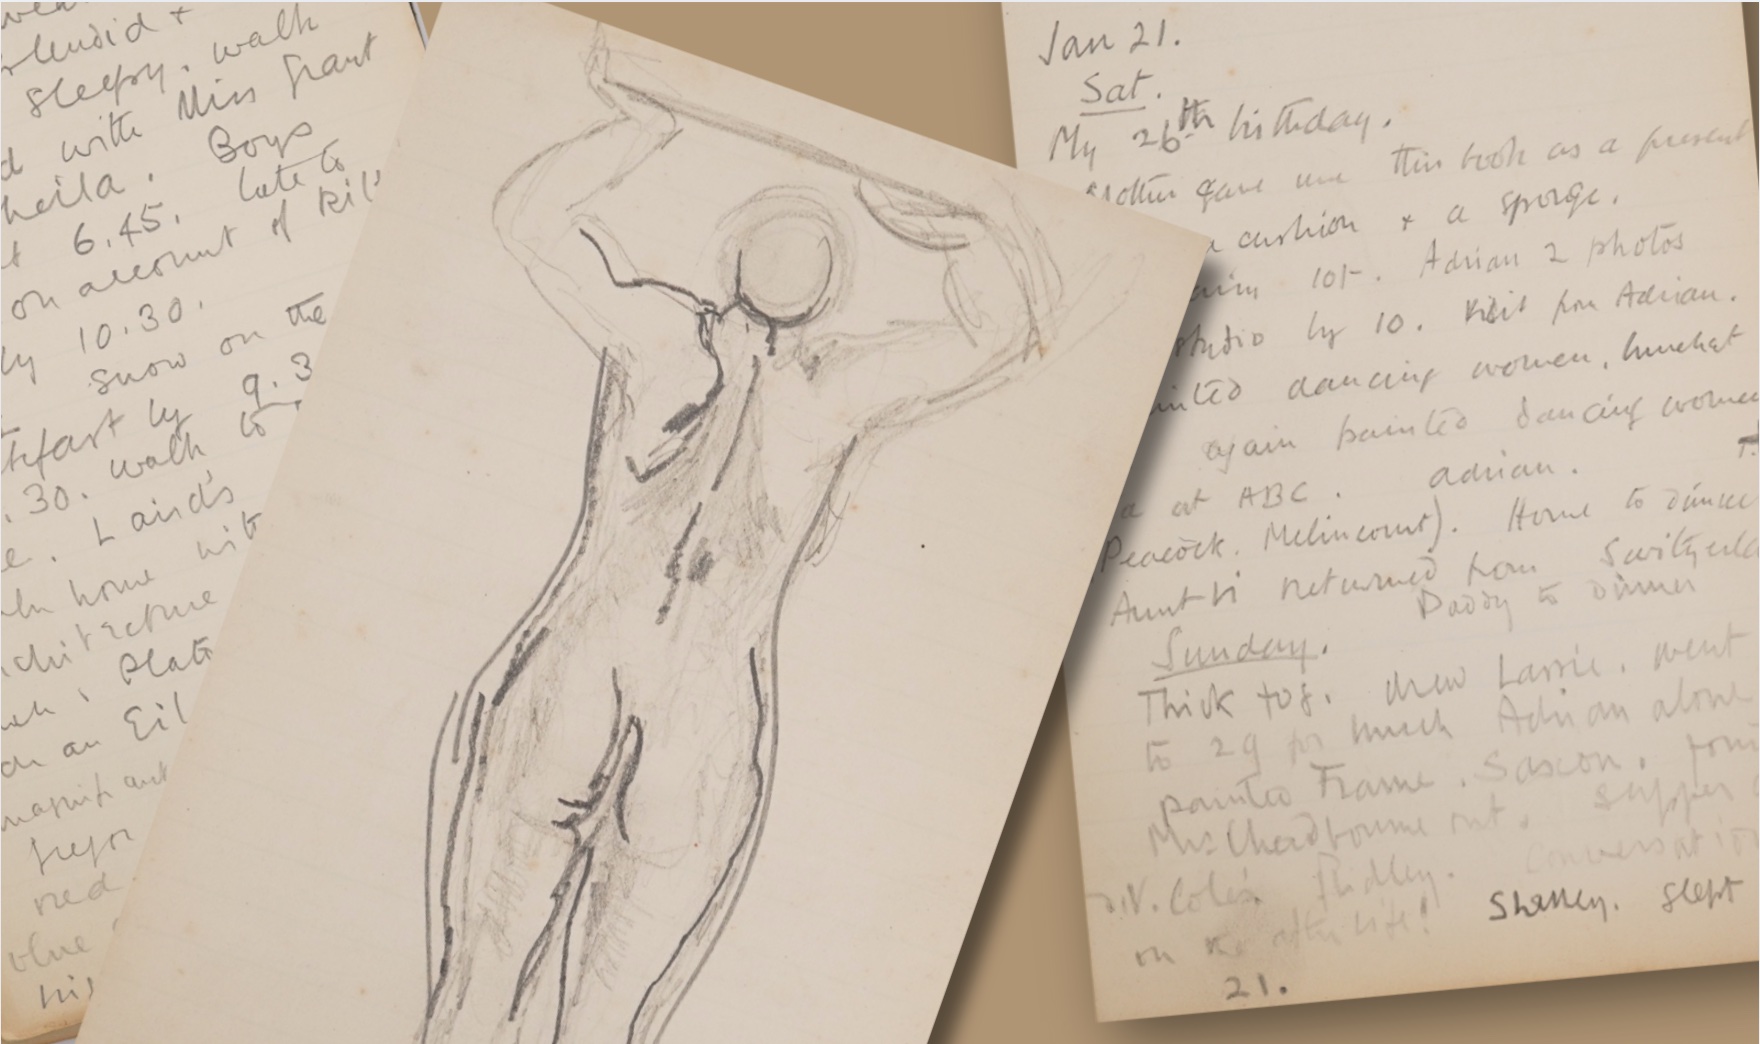 splendid +
sleepy. walk
with Miss Grant
heila. Boys
6.45. late to
on account of
by 10.30.
snow on the
kfast by 9.3
.30. walk to
e. Laird's
home wit
chitecture
Plat
on an Eil
magnif
befor
red
blue
his
Jan 21.
Sat.
My 26th birthday.
Mother gave me this book as a present
a cushion + a sponge.
10/-. Adrian 2 photos
studio by 10. Visit from Adrian.
inted dancing women, lunch at
again painted dancing women
a at ABC. Adrian.
Peacock. Melincourt). Home to dinner
Aunt Vi returned from Switzerla
Daddy to dinner
Sunday.
Thick fog. drew Lassie. went
to 29 for lunch Adrian alone
painted Frame. Saxon.
Mrs Chadbourne out. Supper
D.N. Coles. Ridley. Conversation
on the after life! Shelley. Slept
21.